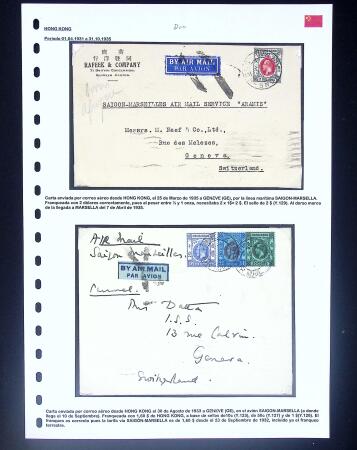 HONG KONG
Periodo 01.04.1931 a 31.10.1935
RAFEEK & COMPANY
BY AIR MAIL
PAR AVION
SAIGON-MARSEILLES AIR MAIL SERVICE "ARAMIS"
Messrs. M. Naef & Co., Ltd.,
Rue des Melezes,
Geneva.
Switzerland.
Carta enviada por correo aéreo desde HONG KONG, el 25 de Marzo de 1935 a GENEVE (GE), por la línea marítima SAIGON-MARSELLA.
Franqueada con 2 dólares correctamente, pues al pesar entre ½ y 1 onza, necesitaba 2 x 1$= 2 $. El sello de 2 $ (Y.129). Al dorso marca
de la llegada a MARSELLA del 7 de Abril de 1935.
Air Mail
Saigon Marseilles.
BY AIR MAIL
PAR AVION
Miss Datta
I.S.S.
13 rue Calvin
Geneva
Switzerland
Carta enviada por correo aéreo desde HONG KONG el 30 de Agosto de 1933 a GENEVE (GE), en el avión SAIGON-MARSELLA (a donde
llega el 10 de Septiembre). Franqueada con 1,60 $ de HONG KONG, a base de sellos de
franqueo es correcto pues la tarifa vía SAIGON-MARSELLA es de 1,60 $ desde el 23 de Septiembre de 1932, incluido ya el franqueo
terrestre.